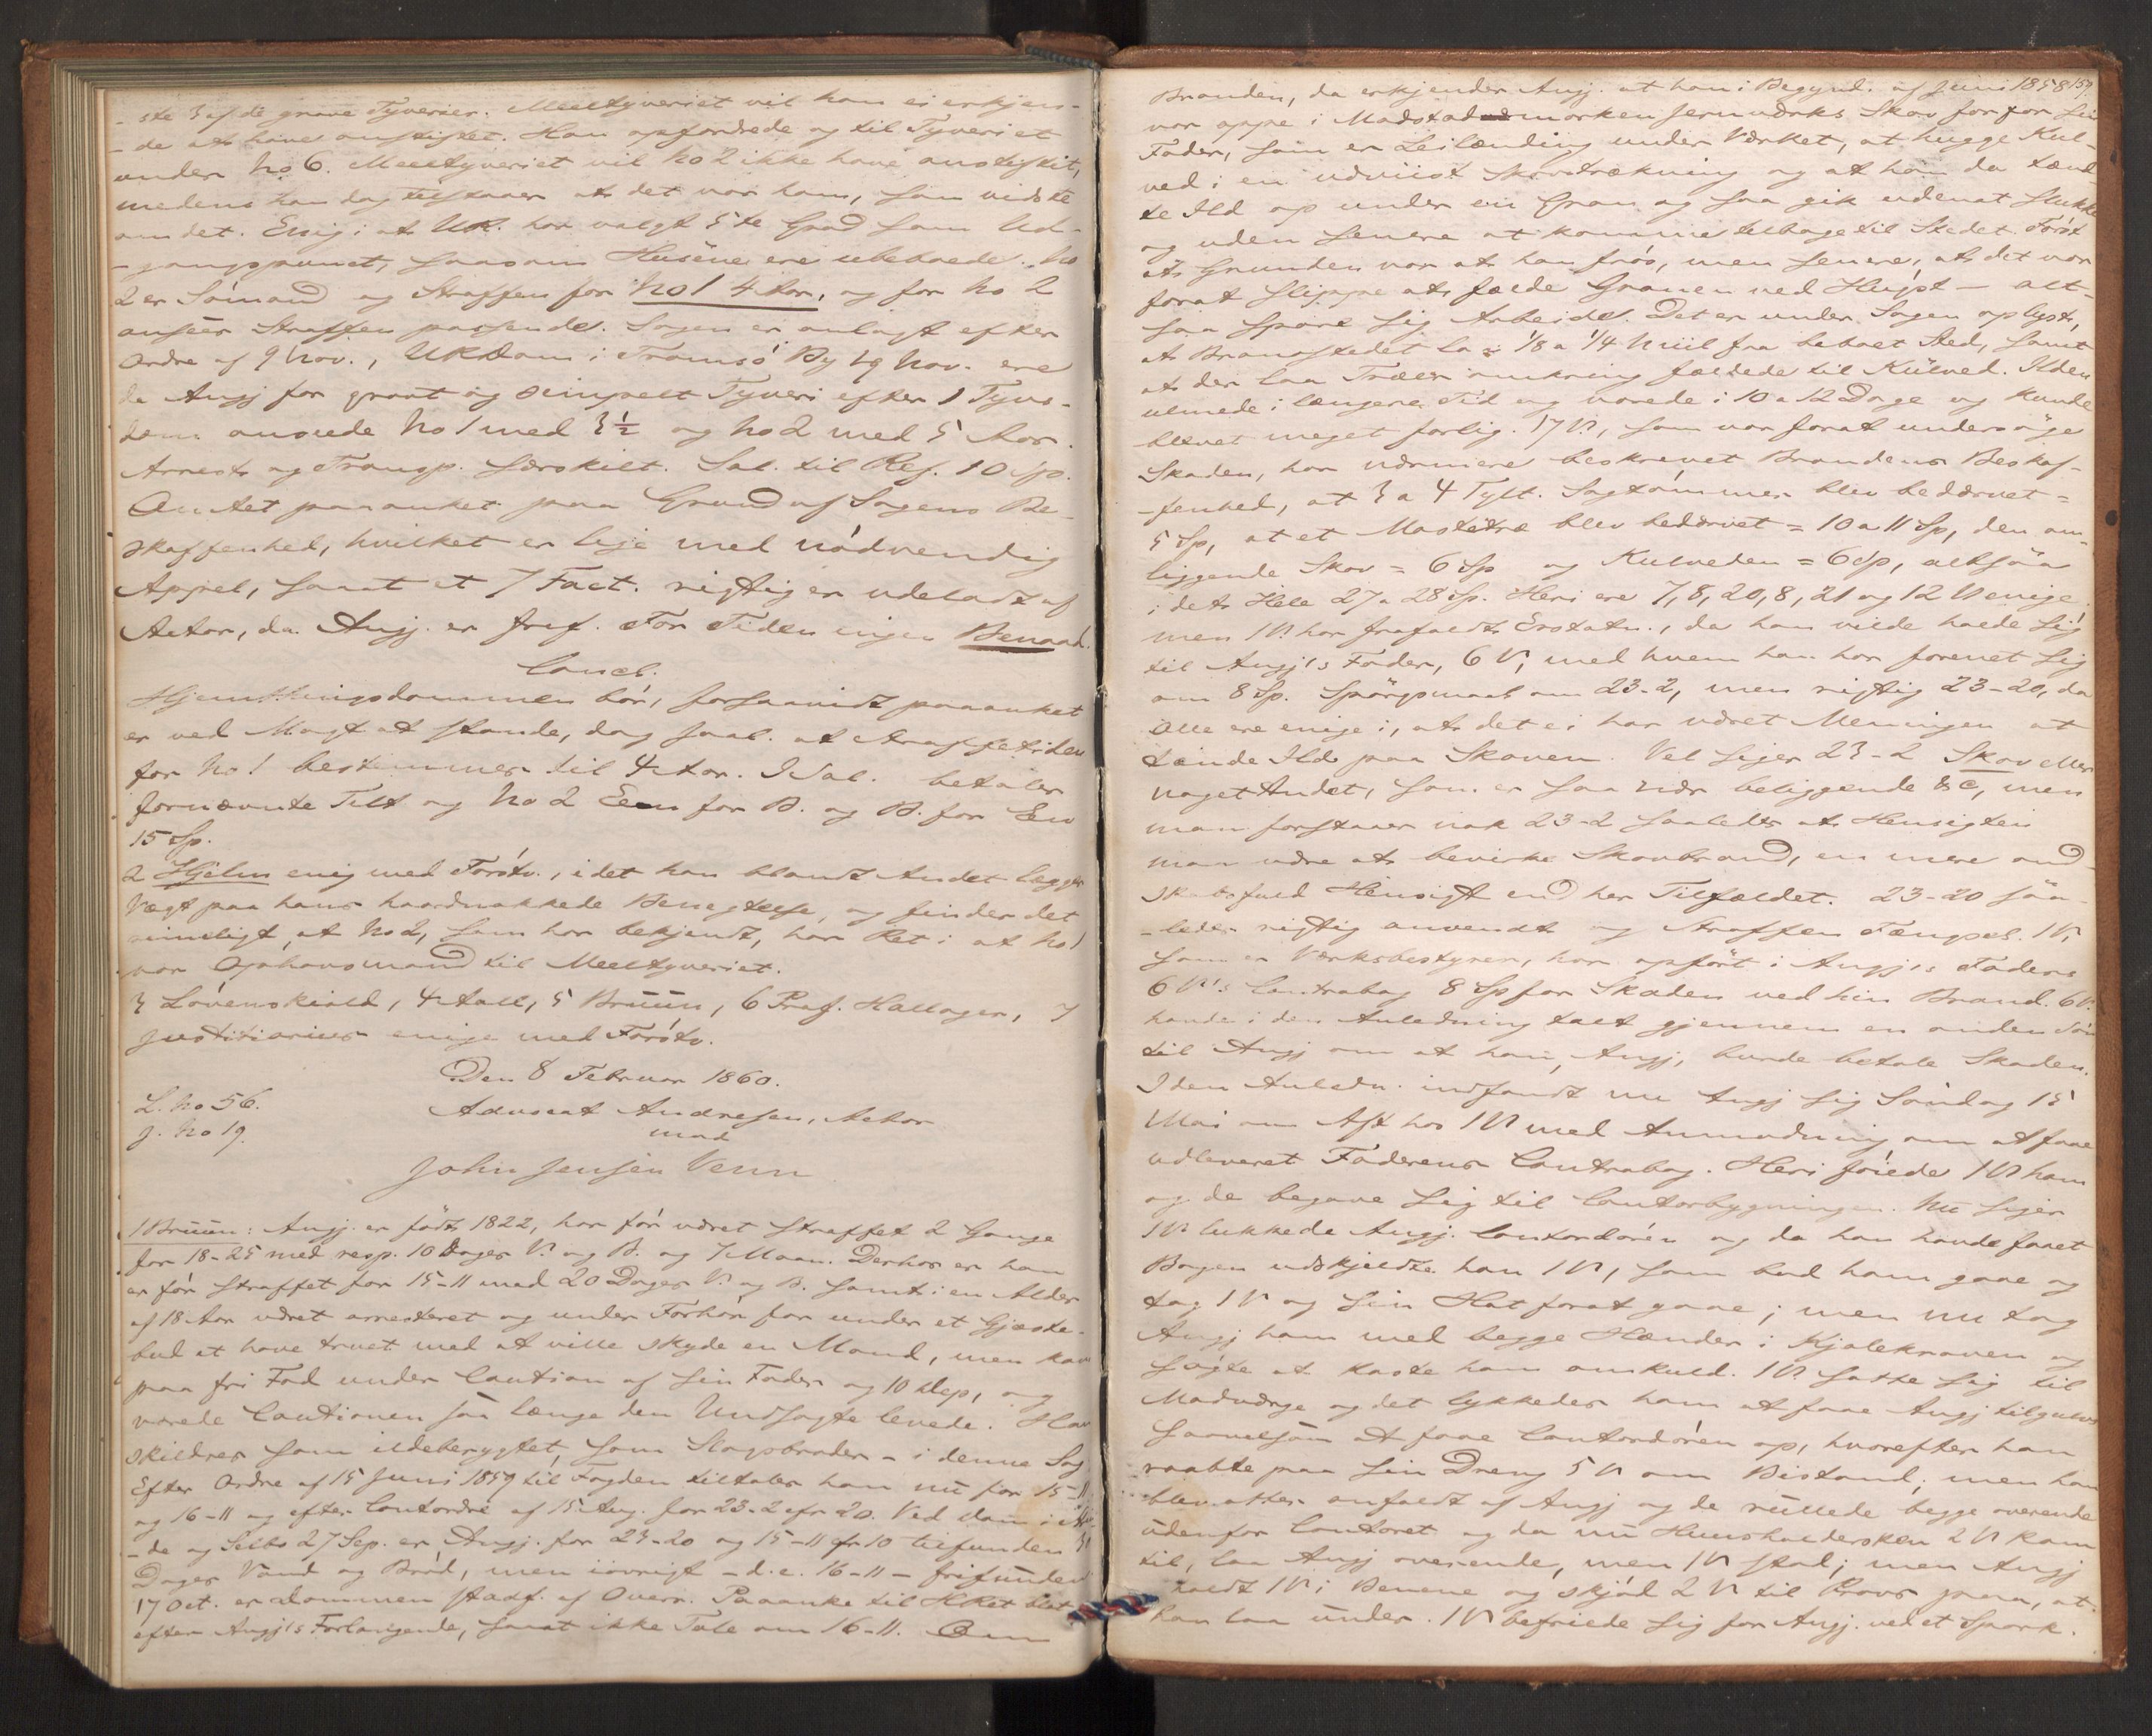 -ste 3 af de grove Tyverier. Meeltyveriet vil han ei erkjen-
-de at have anstiftet. Han opfordrede og til Tyveriet
under No 6. Meeltyveriet vil No 2 ikke have anstiftet,
medens han dog tilstaaer at det var ham, som vidste
om det. Enig i at UR. har valgt 5te Grad som Ud-
-gangspunct, saasom Husene ere ubeboede. No
2 er Sömand og Straffen for No 1 4 Aar, og for No 2
ansees Straffen passende. Sagen er anlagt efter
Ordre af 9 Nov., URDom i Tromsö By 29 Nov. ere
de Angj for grovt og simpelt Tyveri efter 1 Tyvs-
dom anseede No 1 med 3½ og No 2 med 5 Aar.
Arrest og Transp. særskilt. Sal. til Ref. 10 Sp.
Antet paaanket paa Grund af Sagens Be-
skaffenhed, hvilket er lige med nödvendig
Appel, samt at 7 Fact. rigtig er udeladt af
Actor, da Angj. er frif. For Tiden ingen Benaad.
Concl.
Hjemthingsdommen bör, forsaavidt paaanket
er ved Magt at stande, dog saal. at Straffetiden
for No 1 bestemmes til 4 Aar. I Sal. betaler
fornævnte Tilt og No 2 Een for B. og B. for Een
15 Sp.
2 Hjelm enig med Förstv., idet han blandt Andet lægger
Vægt paa hans haardnakkede Benegtelse, og finder det
rimeligt, at No 2, som har bekjendt, har Ret i at No 1
var Ophavsmand til Meeltyveriet.
3 Lövenskiold, 4 Aall, 5 Bruun, 6 Prof. Hallager, 7
Justitiarius enige med Förstv.
Den 8 Februar 1860.
L. No 56.
J. No 19.
Advocat Andresen, Actor
mod
John Jensen Venn
1 Bruun: Angj. er födt 1822, har för været straffet 2 Gange
for 18-25 med resp. 10 Dages V. og B. og 7 Maan. Derhos er han
er för straffet for 15-11 med 20 Dages V. og B. samt i en Alder
af 18 Aar været arresteret og under Forhör for under et Gjæste-
bud at have truet med at ville skyde en Mand, men kom
paa fri Fod under Caution af sin Fader og 10 Dep, og
varede Cautionen saa længe den Undsagte levede. Han
skildres som ildeberygtet, som Slagsbroder - i denne Sag
Efter Ordre af 15 Juni 1859 til Fogden tiltales han nu for 15-11
og 16-11 og efter Contordre af 15 Aug. for 23-2 cfr 20. Ved Dom i
-de og Selbo 27 Sep. er Angj. for 23-20 og 15-11 cfr 10 tilfunden
Dages Vand og Bröd, men iövrigt - d.e. 16-11 - frifunden
17 Oct. er dommen stadf. af Overr. Paaanke til HRet blot
efter Angj's Forlangende, saaat ikke Tale om 16-11. Om
159
Branden, da erkjender Angj. at han i Begynd. af Juni 1858
var oppe i Madstadmarken Jernværks Skov for for sin
Fader, som er Leilænding under Værket, at hugge Kul-
ved i en udviist Skovstrækning og at han da tænd-
te Ild op under en Gran og saa gik udenat slukke
og uden senere at komme tilbage til Stedet. Först
at Grunden var at han frös, men senere, at det var
forat slippe at fælde Granen ved Hugst - alt-
saa spare sig Arbeide. Det er under Sagen oplyst,
at Brandstedet la 1/8 a 1/4 Miil fra beboet Sted, samt
at der laa Træer omkring fældede til Kulved. Ilden
ulmede i længere Tid og varede i 10 a 12 Dage og kunde
blevet meget farlig. 17 V, som var forat undersöge
Skaden, har nærmere beskrevet Brandens Beskaf-
-fenhed, at 3 a 4 Tylt. Sagtömmer blev bedærvet =
5 Sp, at et Mastetræ blev bedærvet = 10 a 11 Sp, den om-
liggende Skov = 6 Sp og Kulveden = 6 Sp, altsaa
i det Hele 27 a 28 Sp. Heri ere 7, 8, 20, 8, 21 og 12 V enige.
men 1 V. har frafaldt Erstatn., da han vilde holde sig
til Angj's Fader, 6 V, med hvem han har forenet sig
om 8 Sp. Spörgsmaal om 23-2, men rigtig 23-20, da
Alle ere enige i, at det ei har været Meningen at
tænde Ild paa Skoven. Vel siger 23-2 Skov eller
noget Andet, som er saa nær beliggende &c, men
man forstaaer nok 23-2 saaledes at Hensigten
maa være at bevirke Skovbrand, en mere ond-
skabsfuld Hensigt end her Tilfældet. 23-20 saa-
-ledes rigtig anvendt og Straffen Fængsel. 1 V,
som er Værksbestyrer, har opfört i Angj's Faders
6 V's Contrabog 8 Sp for Skaden ved hin Brand. 6 V.
havde i den Anledning talt gjennem en anden Sön
til Angj om at han, Angj, burde betale Skaden.
I den Anledn. indfandt nu Angj sig Söndag 15
Mai om Aft hos 1 V med Anmodning om at faae
udleveret Faderens Contrabog. Heri föiede 1 V ham
og de begave sig til Contorbygningen. Nu siger
1 V lukkede Angj. Contordören og da han havde faaet
Bogen udskjeldte han 1 V, som bad ham gaae og
tog 1 V og sin Hat forat gaae; men nu tog
Angj ham med begge Hænder i Kjolekraven og
sögte at kaste ham omkuld. 1 V satte sig til
Modværge og det lykkedes ham at faae Angj tilgulvs
saavelsom at faae Contordören op, hvorefter han
raabte paa sin Dreng 5 V om Bistand; men han
blev atter anfaldt af Angj og de rullede begge overende
udenfor Contoret og da nu Huusholdersken 2 V kom
til, laa Angj overende, men 1 V stod; men Angj
holdt 1 V i Benene og skjöd 2 V til Prov paa, at
han laa under. 1 V befriede sig for Angj. ved et Spark.